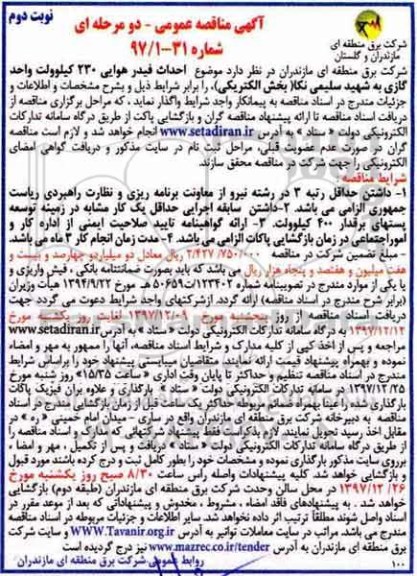 آگهی مناقصه عمومی - دو مرحله ای
نوبت دوم
شماره ۳۱-۹۷/۱
شرکت برق منطقه ای
مازندران و گلستان
شرکت برق منطقه ای مازندران در نظر دارد موضوع احداث فیدر هوایی ۲۳۰ کیلوولت واحد
گازی به شهید سلیمی نکا( بخش الکتریکی)، را برابر شرایط ذیل و بشرح مشخصات و اطلاعات و
جزئیات مندرج در اسناد مناقصه به پیمانکار واجد شرایط واگذار نماید ، که مراحل برگزاری مناقصه از
دریافت اسناد مناقصه تا ارائه پیشنهاد مناقصه گران و بازگشایی پاکات از طریق درگاه سامانه تدارکات
الکترونیکی دولت « ستاد » به آدرس www.setadiran.ir انجام خواهد شد و لازم است مناقصه
گران در صورت عدم عضویت قبلی، مراحل ثبت نام در سایت مذکور و دریافت گواهی امضای
الکترونیکی را جهت شرکت در مناقصه محقق سازند.
شرایط مناقصه :
۱- داشتن حداقل رتبه ۳ در رشته نیرو از معاونت برنامه ریزی و نظارت راهبردی ریاست
جمهوری الزامی می باشد. ۲-داشتن سابقه اجرایی حداقل یک کار مشابه در زمینه توسعه
پستهای برقدار ۴۰۰ کیلوولت. ۳- ارائه گواهینامه تایید صلاحیت ایمنی از اداره کار و
اموراجتماعی در زمان بازگشایی پاکات الزامی می باشد. ۴- مدت زمان انجام کار ۴ ماه می باشد.
- مبلغ تضمین شرکت در مناقصه ۲/۴۲۷/۷۵۰/۰۰۰ ریال معادل دو میلیاردو چهارصد و بیست و
هفت میلیون و هفتصد و پنجاه هزار ریال می باشد که باید بصورت ضمانتنامه بانکی ، فیش واریزی و
یا یکی از موارد مندرج در تصویبنامه شماره ۱۲۳۴۰۲/ت۵۰۶۵۹ هـ مورخ ۱۳۹۴/۹/۲۲ هیأت وزیران
(برابر شرح مندرج در اسناد مناقصه) ارائه گردد. ازشرکتهای واجد شرایط دعوت می گردد جهت
دریافت اسناد مناقصه از روز پنجشنبه مورخ ۱۳۹۷/۱۲/۰۹ لغایت روز یکشنبه مورخ
۱۳۹۷/۱۲/۱۲ به درگاه سامانه تدارکات الکترونیکی دولت « ستاد » به آدرس www.setadiran.ir
مراجعه و پس از اخذ کپی از کلیه مدارک و شرایط اسناد مناقصه، آنها را ممهور به مهر و امضاء
نموده و بهمراه پیشنهاد قیمت ارائه نمایند. متقاضیان میبایستی پیشنهاد خود را براساس شرایط
مندرج در اسناد مناقصه تنظیم و حداکثر تا پایان وقت اداری « ساعت ۱۵/۳۵» روز شنبه مورخ
۱۳۹۷/۱۲/۲۵ در سامانه تدارکات الکترونیکی دولت « ستاد » بارگذاری و علاوه بران فیزیک پاکات
بارگذاری شده را عینا بهمراه ضمائم مربوطه حداکثر یک ساعت قبل از زمان بازگشایی مندرج در اسناد
مناقصه به دبیرخانه شرکت برق منطقه ای مازندران واقع در ساری - میدان امام خمینی « ره » در
مقابل اخذ رسید تحویل نمایند. لازم بذکر است فقط پیشنهاد شرکتهائی که مدارک اسناد مناقصه را
از طریق درگاه سامانه تدارکات الکترونیکی دولت « ستاد » دریافت و پس از تکمیل ، مهر و امضاء
برروی سایت مذکور بارگذاری نموده و مشخصات خود را بطور کامل ثبت و درج کرده باشند مورد قبول
و بازگشایی خواهد شد. کلیه پیشنهادات واصله راس ساعت ۸/۳۰ صبح روز یکشنبه مورخ
۱۳۹۷/۱۲/۲۶ در محل سالن وحدت شرکت برق منطقه ای مازندران (طبقه دوم) بازگشایی
خواهد شد . به پیشنهادهای فاقد امضاء ، مشروط ، مخدوش و پیشنهاداتی که بعد از موعد مقرر در
اسناد واصل شوند مطلقاً ترتیب اثر داده نخواهد شد. سایر اطلاعات و جزئیات مربوطه در اسناد مناقصه
مندرج می باشد. مراتب در سایت معاملات توانیر به آدرس WWW.Tavanir.org.ir و سایت شرکت
برق منطقه ای مازندران به آدرس www.mazrec.co.ir/tender نیز درج گردیده است
روابط عمومی شرکت برق منطقه ای مازندران
۱۰۰